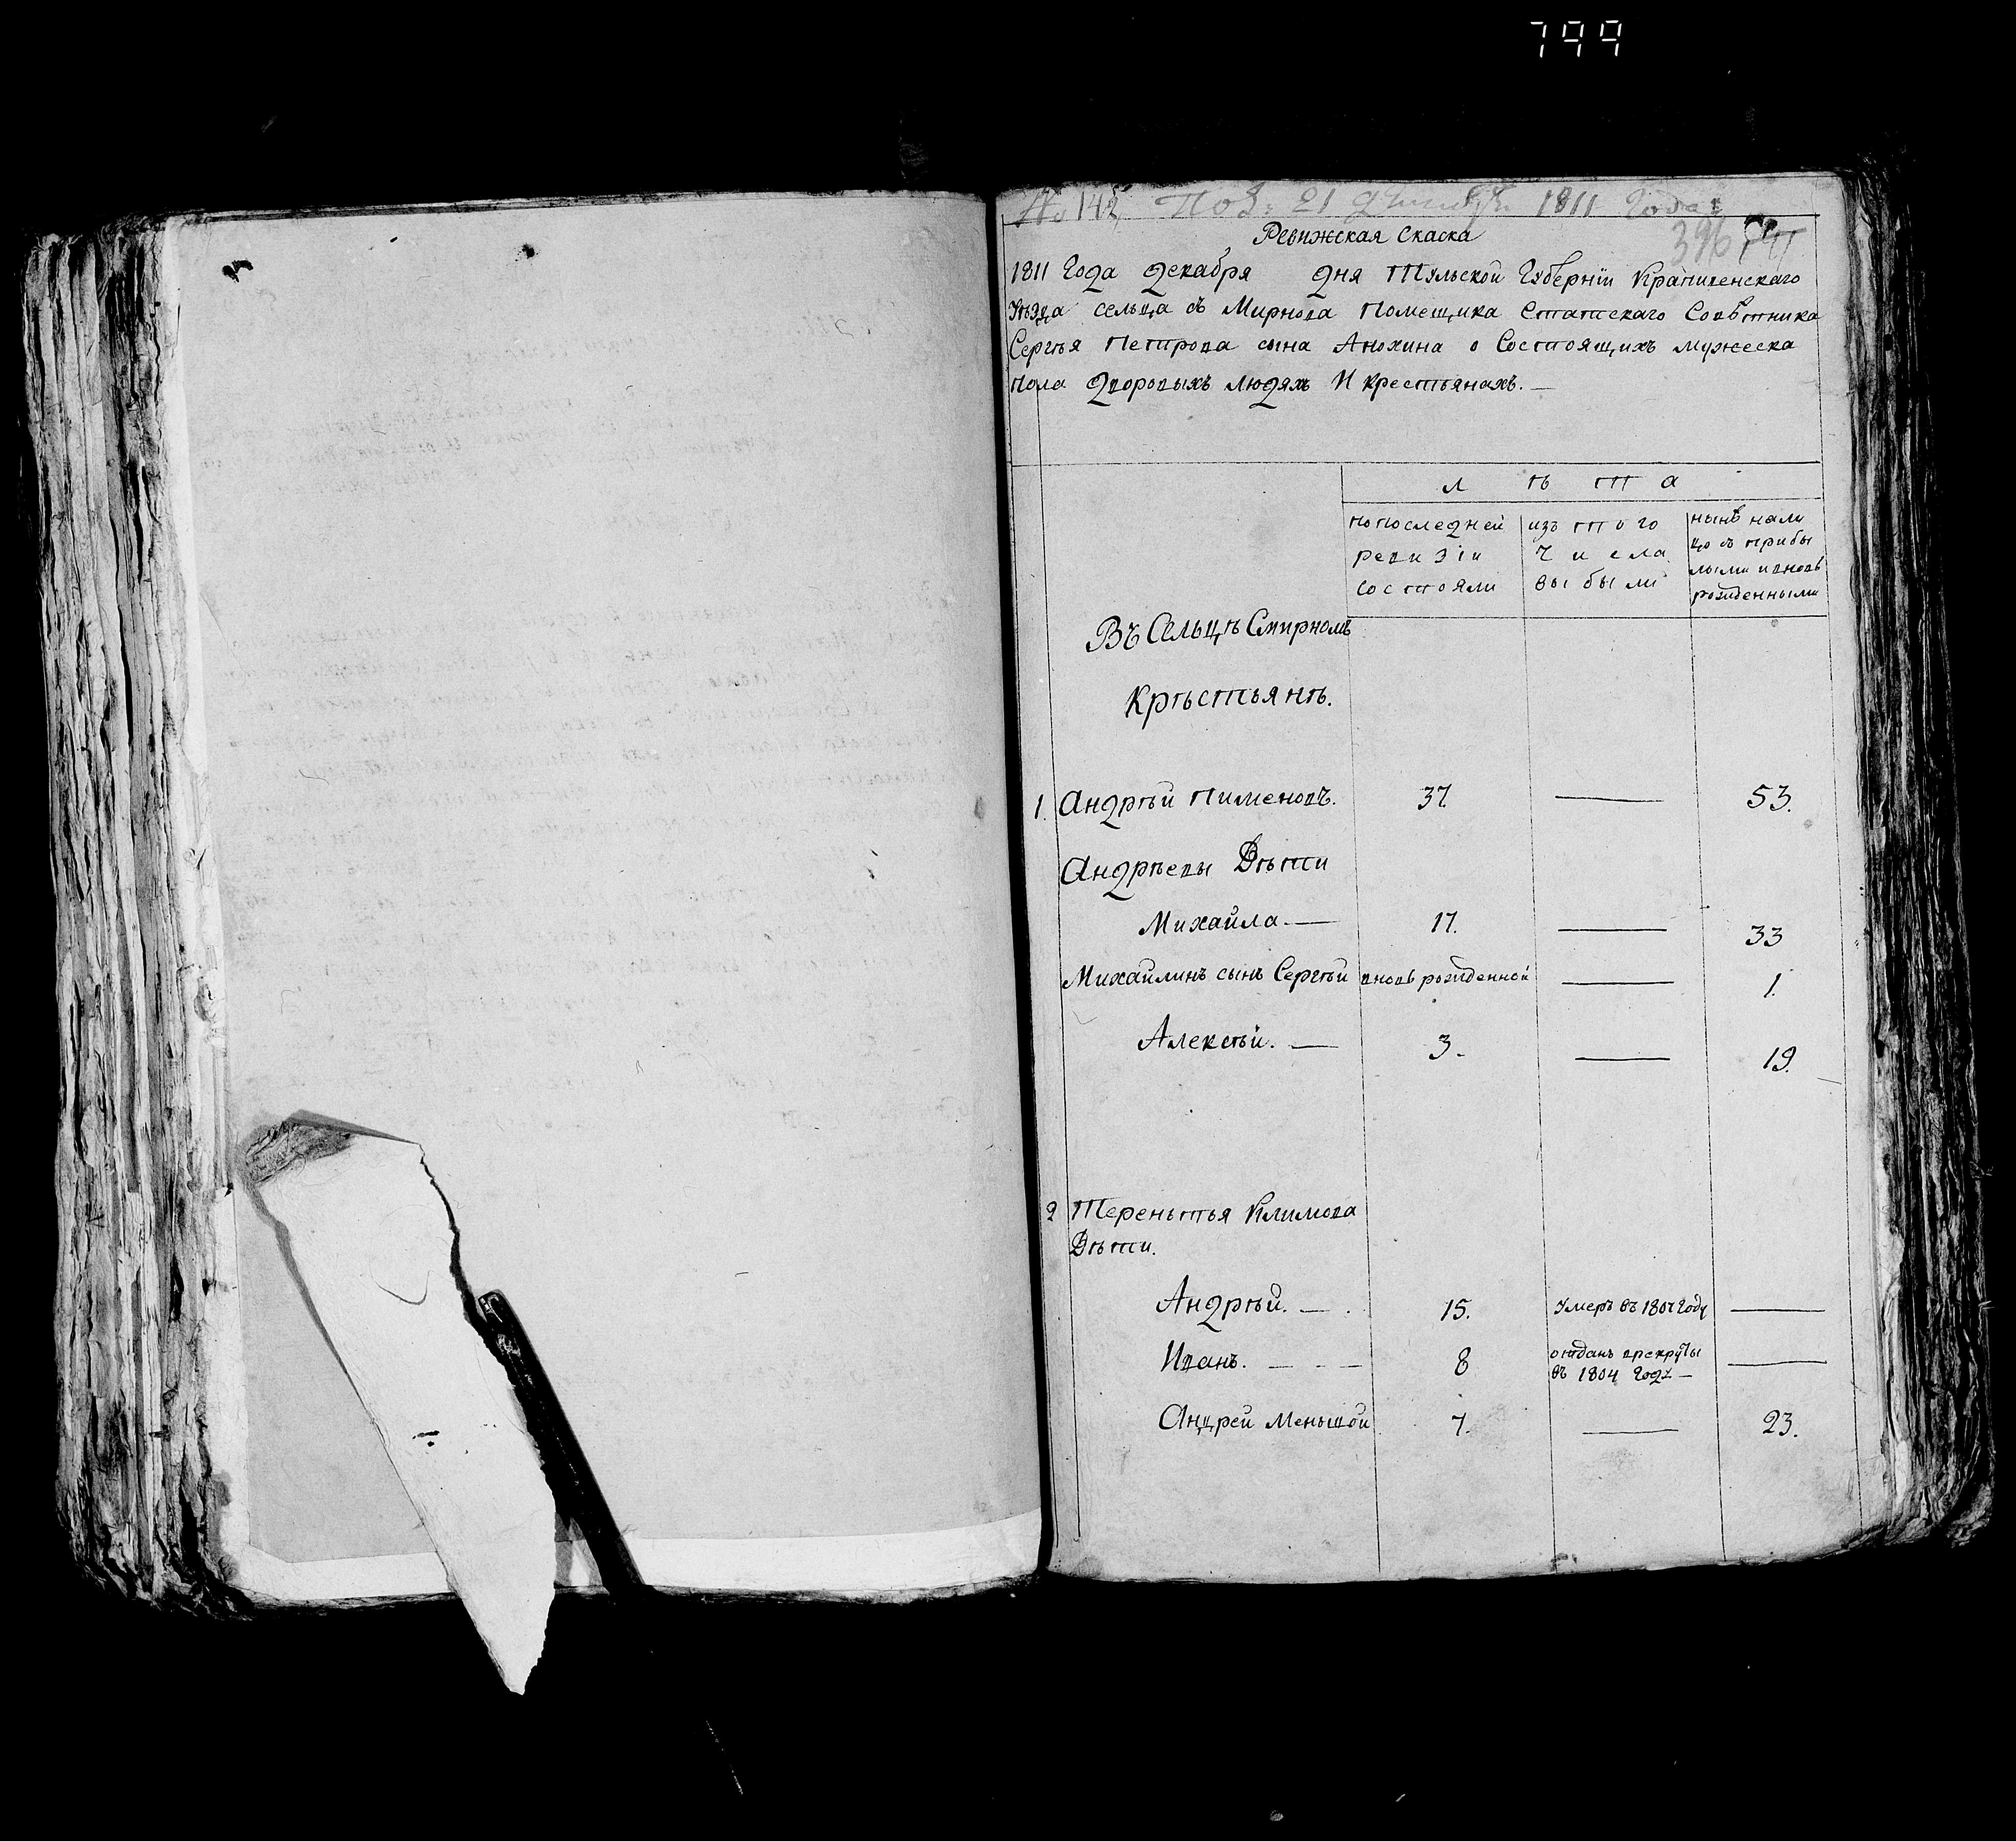 799
№ 142 Под: 21 декабря 1811 Года
396
Ревижская Скаска
1811 Года декабря дня Тульской Губерніи Крапивенскаго
Уѣзда сельца съ Мирнова Помещика Статскаго Совѣтника
Сергѣя Петрова сына Анохина о Состоящихъ мужеска
пола дворовыхъ людяхъ И крестьянахъ. —
л ѣ т а
по последней | изъ того | нынѣ нали
ревизіи | числа | цо съ прибы
состояли | выбыли | лыми и вновь
рожденными
Въ Сельцѣ Смирномъ
Крѣстьянѣ.
1. Андрѣй Пименовъ. 37. — 53.
Андрѣевы Дѣти
Михайла. — 17. — 33
Михайлинъ сынъ Сергѣй вновь рожденной — 1.
Алексѣй. — 3. — 19.
2 Терентья Климова
Дѣти.
Андрѣй. — 15. Умеръ въ 1807 Году —
Иванъ. — 8 отданъ врекруты —
въ 1804 Году —
Андрей Меньшой 7. — 23.